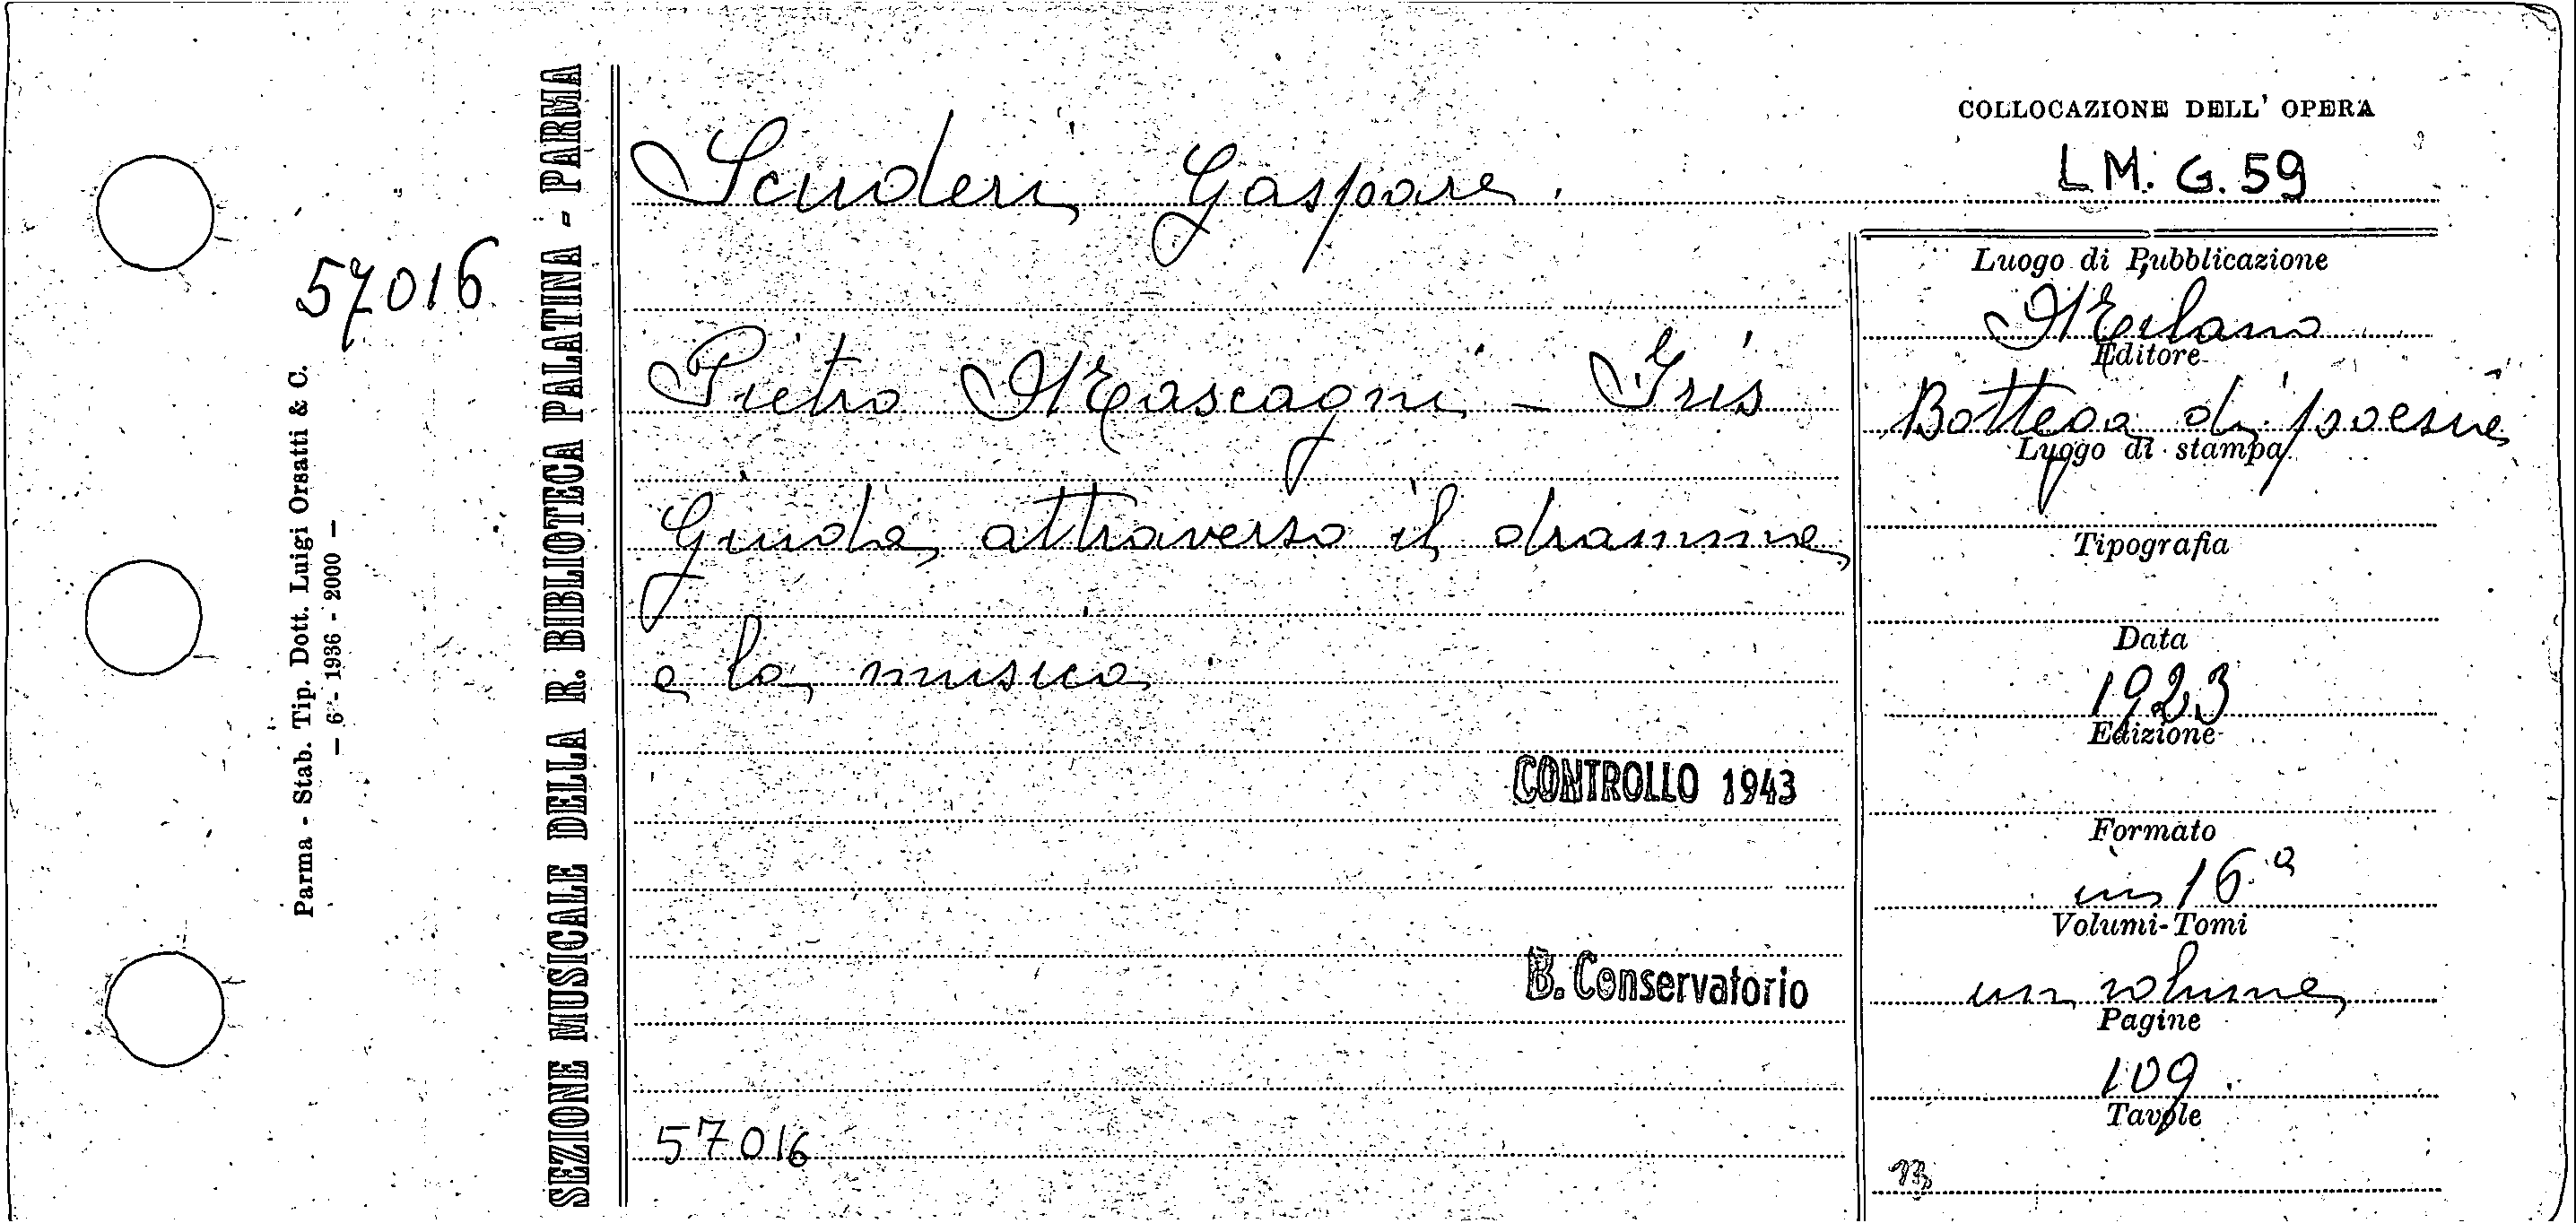 57016
Parma - Stab. Tip. Dott. Luigi Orsatti & C.
— 6 - 1936 - 2000 —
SEZIONE MUSICALE DELLA R. BIBLIOTECA PALATINA - PARMA
Scuderi Gaspare.
Pietro Mascagni - Iris
Guida attraverso il dramma
e la musica
CONTROLLO 1943
B. Conservatorio
57016
COLLOCAZIONE DELL' OPERA
L M. G. 59
Luogo di Pubblicazione
Milano
Editore
Bottega di poesia
Luogo di stampa
Tipografia
Data
1923
Edizione
Formato
in 16.º
Volumi-Tomi
un volume
Pagine
109.
Tavole